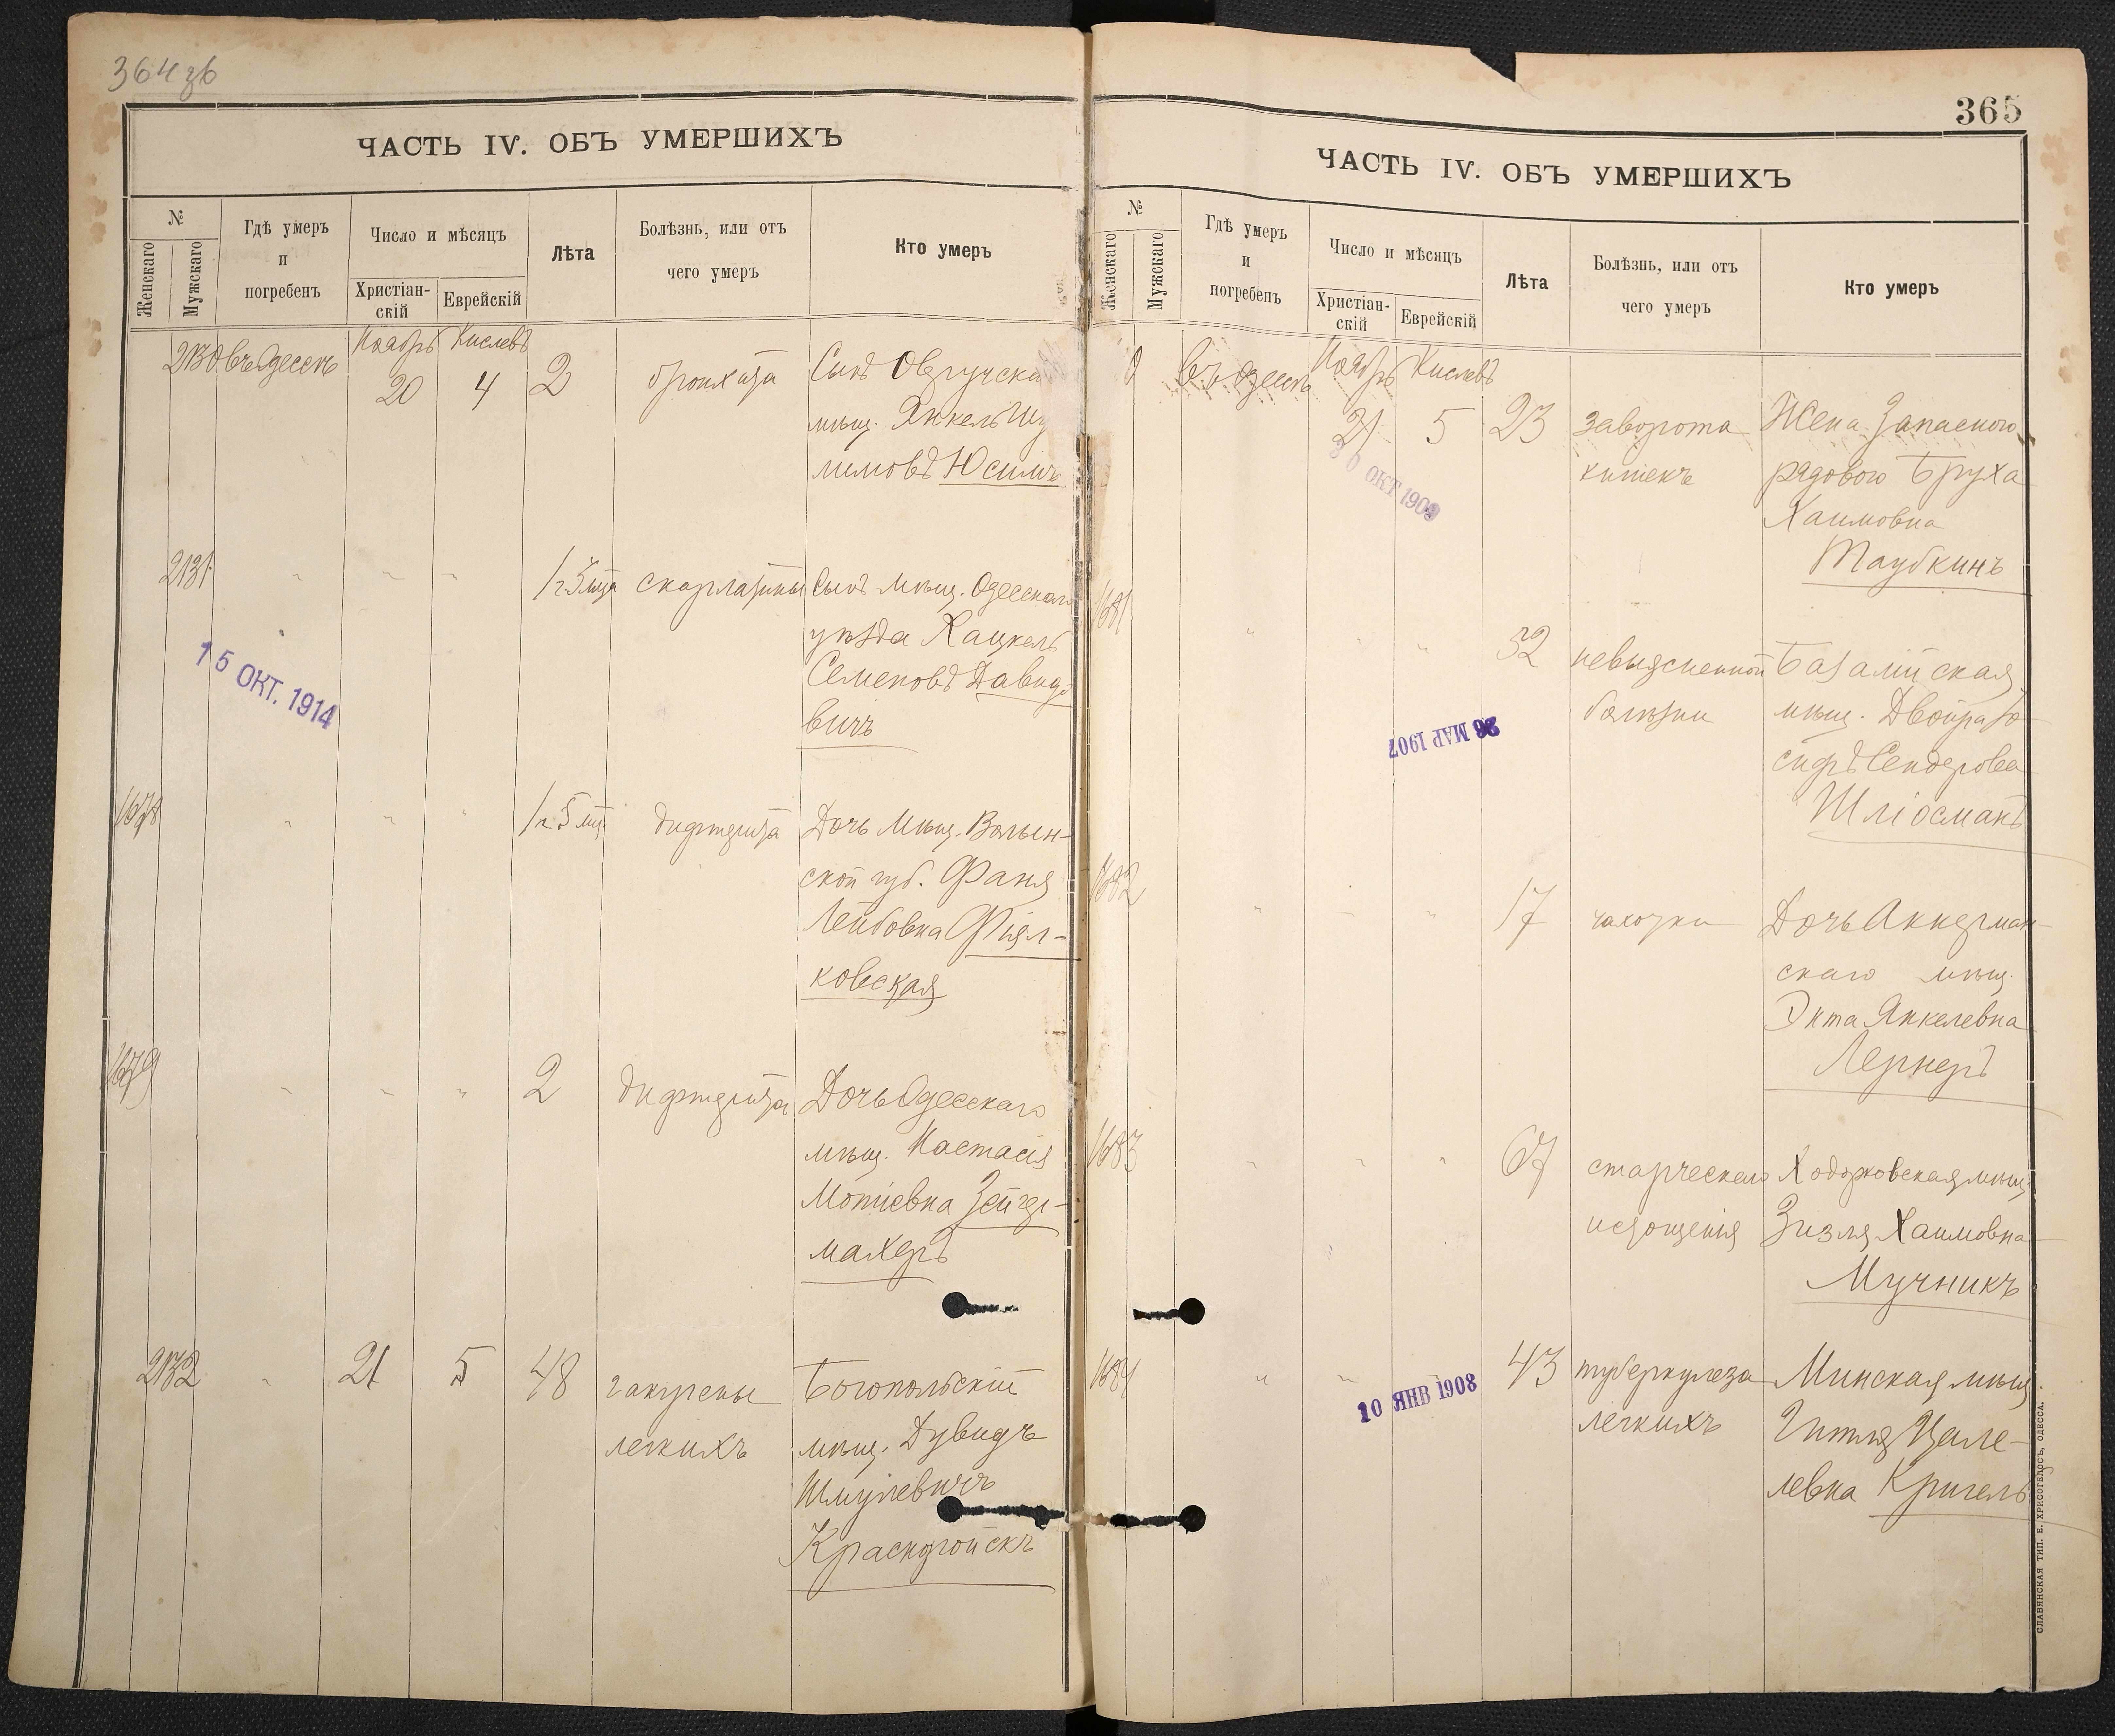 364зб
ЧАСТЬ IV. ОБЪ УМЕРШИХЪ
№
Женскаго
Мужскаго
Гдѣ умеръ
и
погребенъ
Число и мѣсяцъ
Христіан-
скій
Еврейскій
Лѣта
Болѣзнь, или отъ
чего умеръ
Кто умеръ
2130 въ Одессѣ Ноябрь 20 Кислевъ 4 2 бронхита Сынъ Овручска
мѣщ. Янкель
Юсимъ
2131 " " " 1 г. 3 мца скарлатины Сынъ мѣщ. Одесскаго
уѣзда Хацкель
Семеновъ Давидо
вичъ
15 ОКТ. 1914
1678 " " " 1 г. 5 мц. дифтерита Дочь мѣщ. Волын-
ской губ. Фаня
Лейбовна Фіял-
ковская
1679 " " " 2 дифтерита Дочь Одесскаго
мѣщ. Настасія
Мотіевна Зейгер-
махеръ
2132 " 21 5 48 гангрены Богопольскій
легкихъ мѣщ. Дувидъ
Шмулевичъ
365
ЧАСТЬ IV. ОБЪ УМЕРШИХЪ
№
Женскаго
Мужскаго
Гдѣ умеръ
и
погребенъ
Число и мѣсяцъ
Христіан-
скій
Еврейскій
Лѣта
Болѣзнь, или отъ
чего умеръ
Кто умеръ
0 въ Одессѣ Ноябрь 21 Кислевъ 5 23 заворота Жена Запасного
кишекъ рядового Бруха
Хаимовна
Таубкинъ
30 ОКТ 1909
1681 " " " 52 невыясненной Базалійская
болѣзни мѣщ. Двойра Ю-
Сендерова
Шліосманъ
26 МАР 1907
1682 " " " 17 чахотки Дочь Аккерман-
скаго мѣщ.
Энта Янкелевна
Лернеръ
1683 " " " 67 старческаго Ходорковская мѣщ.
истощенія Зизля Хаимовна
Мучникъ
1684 " " 43 туберкулеза Минская мѣщ.
легкихъ Гитля Цале-
левна Кригель
10 ЯНВ 1908
СЛАВЯНСКАЯ ТИП. Е. ХРИСОГЕЛОСЪ, ОДЕССА.